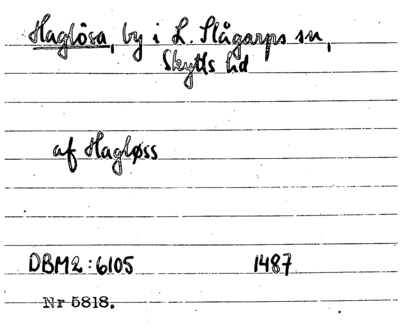 Haglösa, by i L. Slågarps sn,
Skytts hd
af Hagløss
DBM2:6105 1487
Nr 5818.